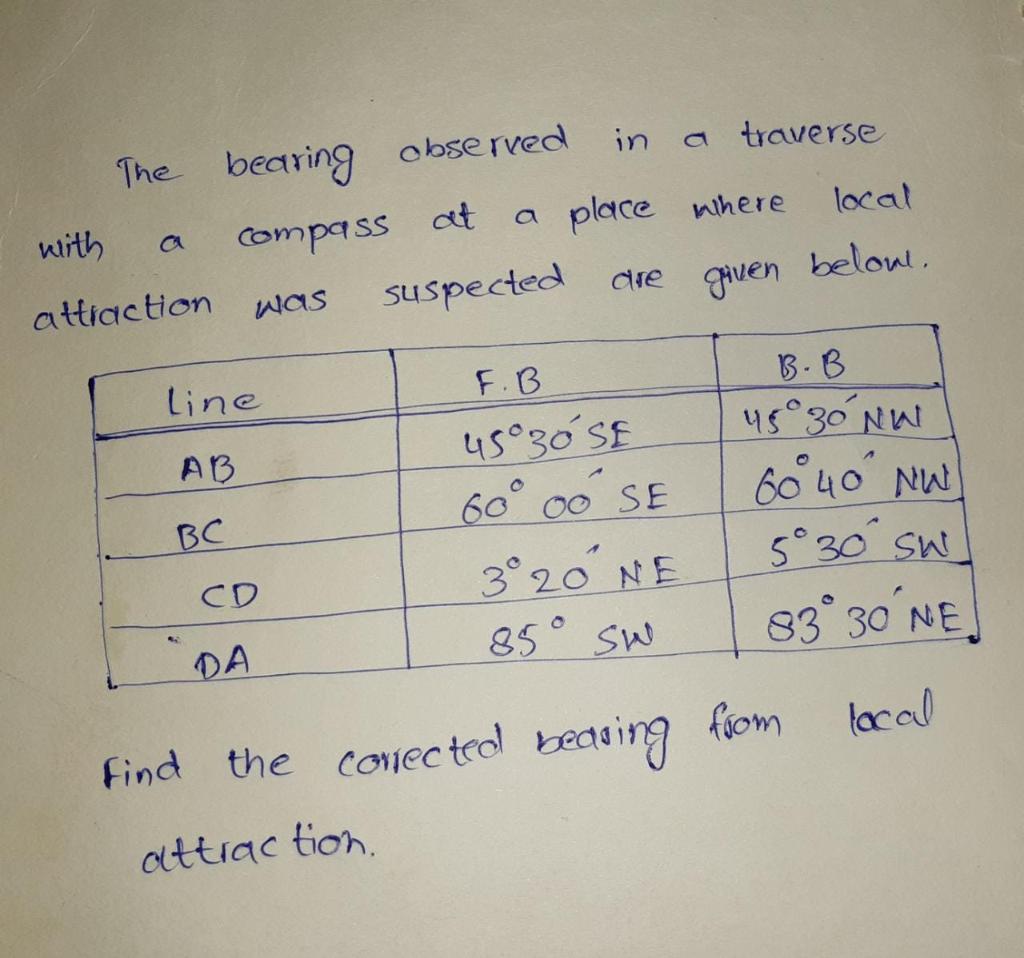 The bearing observed in a traverse
with a compass at a place where local
attraction was suspected are given below.
Line F.B B.B
AB 45°30' SE 45°30' NW
BC 60° 00' SE 60°40' NW
CD 3°20' NE 5°30' SW
DA 85° SW 83°30' NE
Find the corrected bearing from local
attraction.